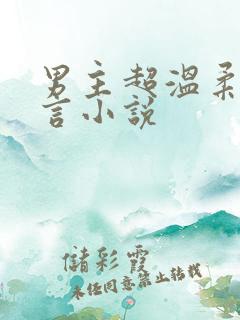 男主超温柔
言小说
儲彩霞
未经同意禁止转载